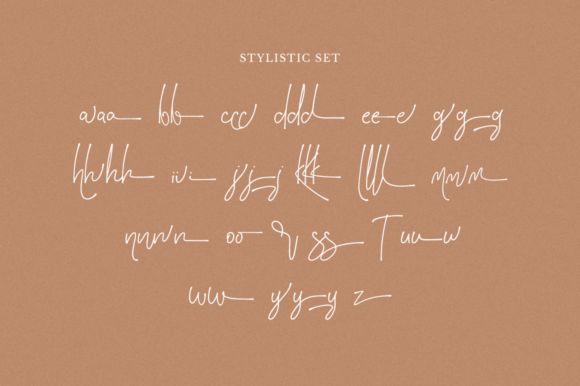 STYLISTIC SET
aaa bb ccc ddd eee ggg
hhhh iii jjj kkk lll mmm
nnn oo r ss T uuu
ww yyy z